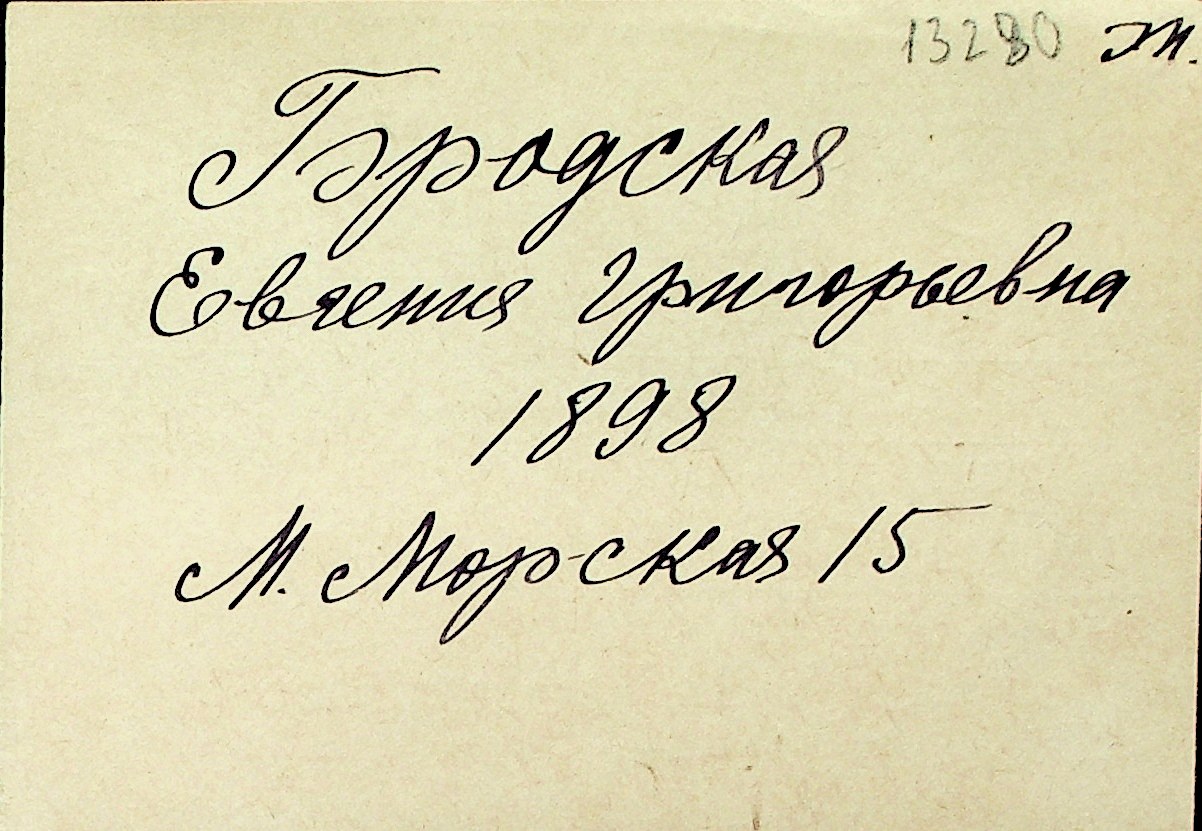 13280 Ж.
Бродская
Евгения Григорьевна
1898
М. Морская 15